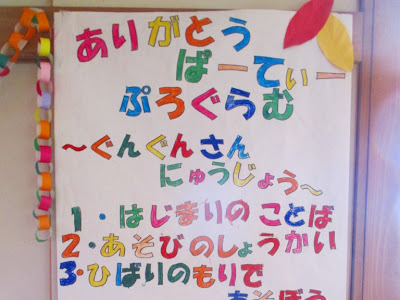 ありがとう
ぱーてぃー
ぷろぐらむ
～ぐんぐんさん
にゅうじょう～
1・はじまりのことば
2・あそびのしょうかい
3・ひばりのもりで
あそぼう